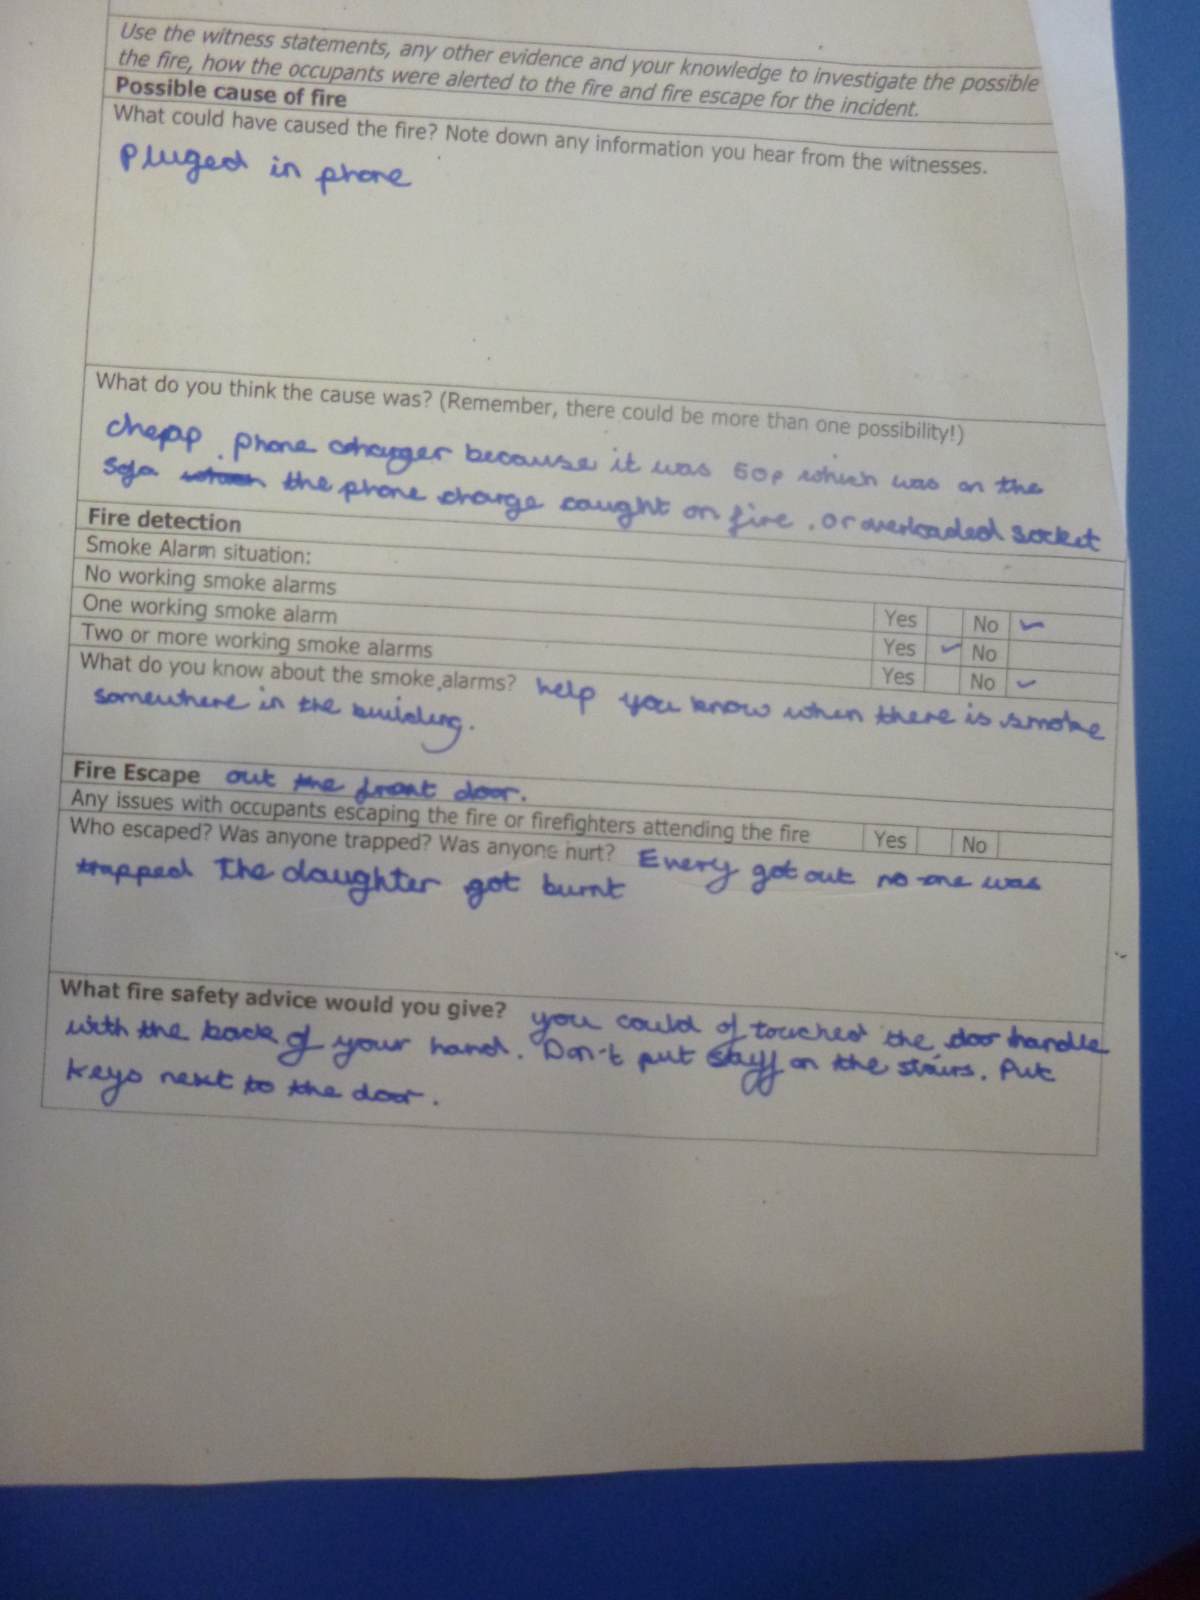 Use the witness statements, any other evidence and your knowledge to investigate the possible
the fire, how the occupants were alerted to the fire and fire escape for the incident.
Possible cause of fire
What could have caused the fire? Note down any information you hear from the witnesses.
Pluged in phone
What do you think the cause was? (Remember, there could be more than one possibility!)
cheap phone charger because it was 50p which was on the
sofa the phone charge caught on fire. or overloaded socket
Fire detection
Smoke Alarm situation:
No working smoke alarms Yes No ✓
One working smoke alarm Yes ✓ No
Two or more working smoke alarms Yes No ✓
What do you know about the smoke alarms? help you know when there is smoke
somewhere in the building.
Fire Escape out the front door.
Any issues with occupants escaping the fire or firefighters attending the fire Yes No
Who escaped? Was anyone trapped? Was anyone hurt? Every got out no one was
trapped The daughter got burnt
What fire safety advice would you give? you could of touched the door handle
with the back of your hand. Don't put stuff on the stairs. Put
keys next to the door.